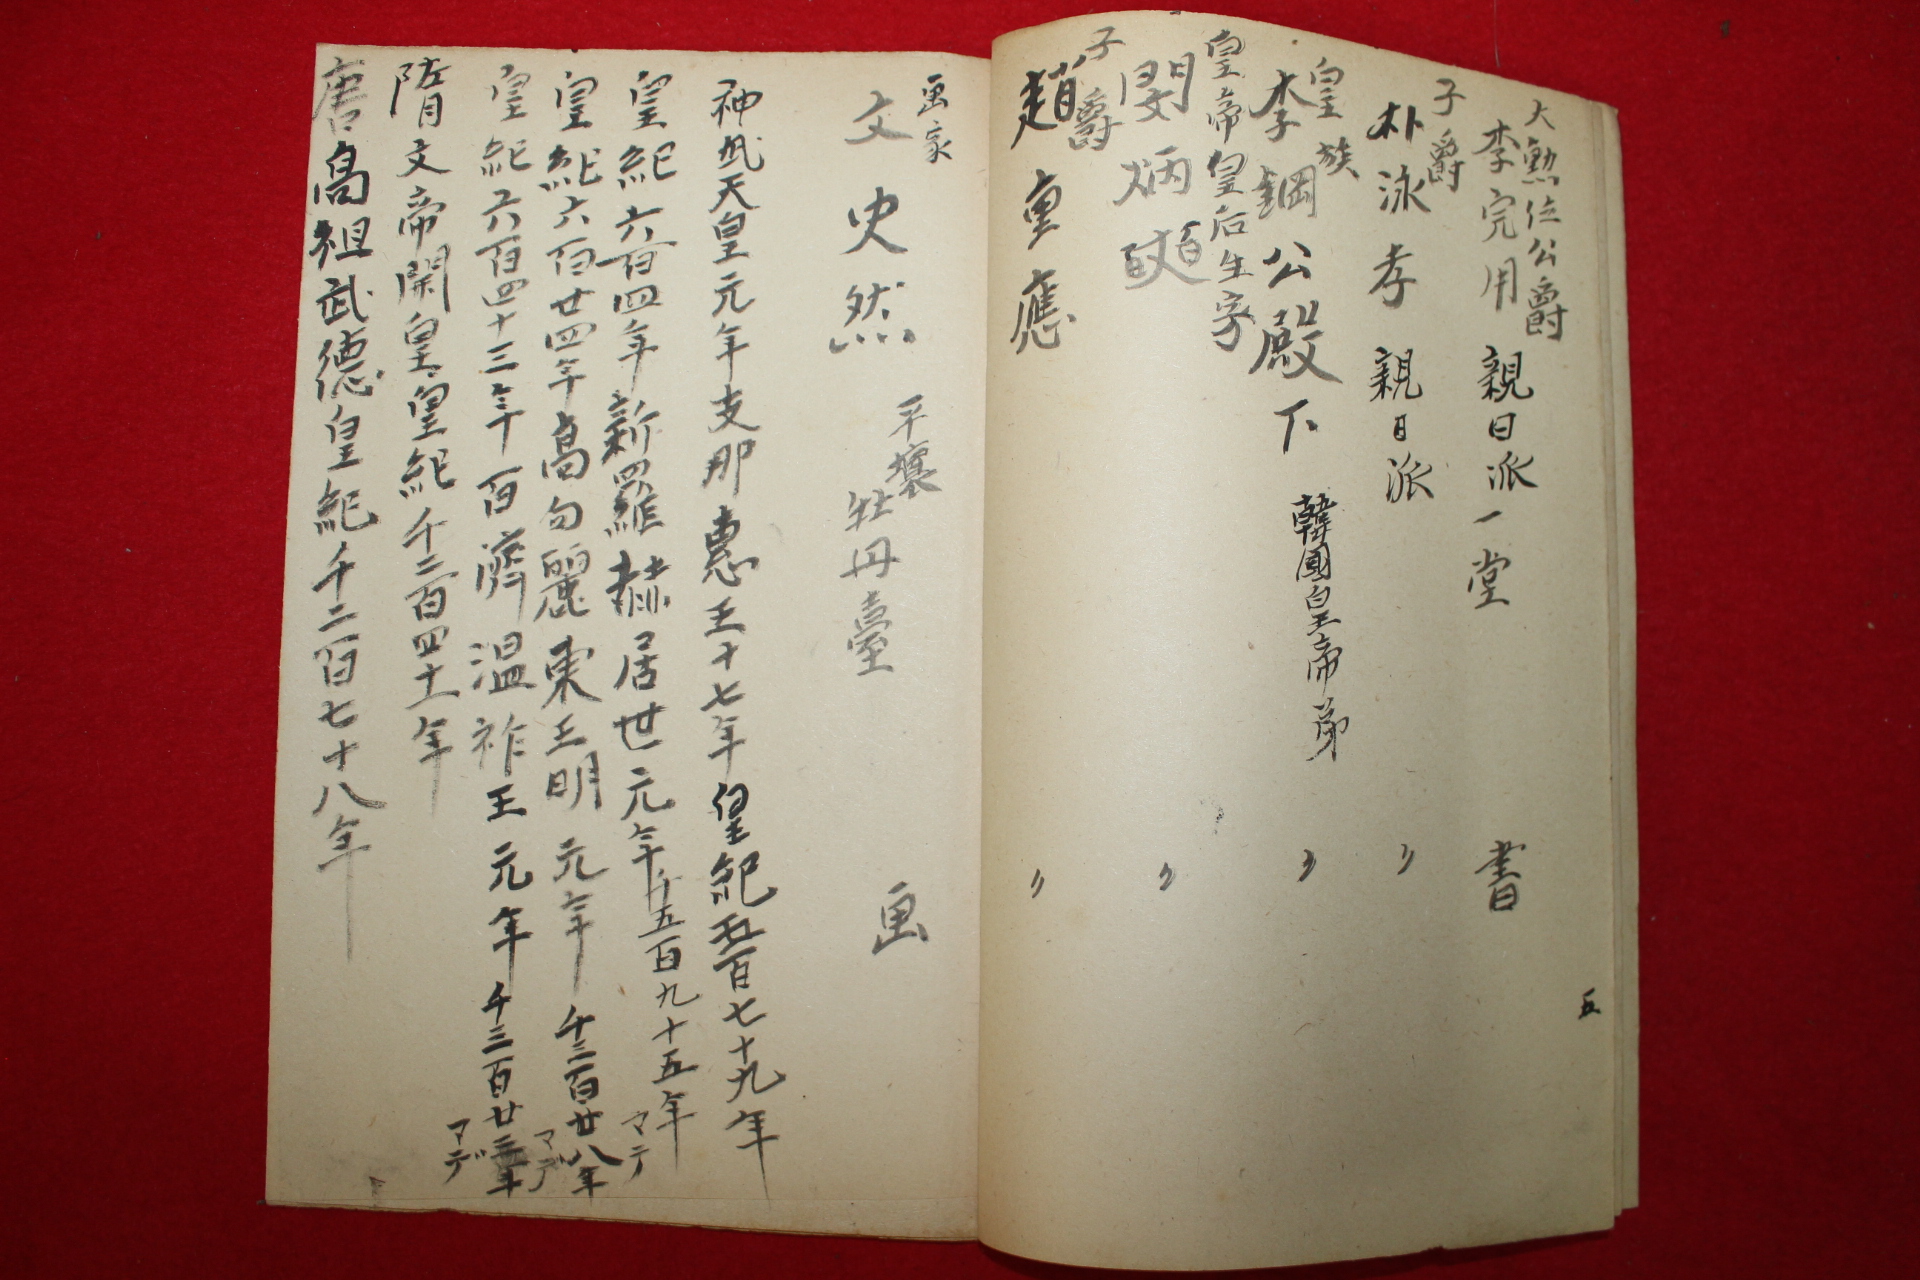 大勲位公爵
李完用 親日派 一堂 書
子爵
朴泳孝 親日派 〃
皇族
李鋼公殿下 韓國皇帝弟 〃
皇帝皇后生家
閔炳 〃
子爵
趙重應 〃
五
画家
文史然 平壤 牡丹臺 画
神武天皇元年支那惠王十七年皇紀五百七十九年
皇紀六百四年新羅赫居世元年千五百九十五年マテ
皇紀六百廿四年高勾麗東王明元年千三百廿八年マデ
皇紀六百四十三年百濟温祚王元年千三百廿三年マデ
隋文帝開皇皇紀千二百四十一年
唐高祖武德皇紀千二百七十八年